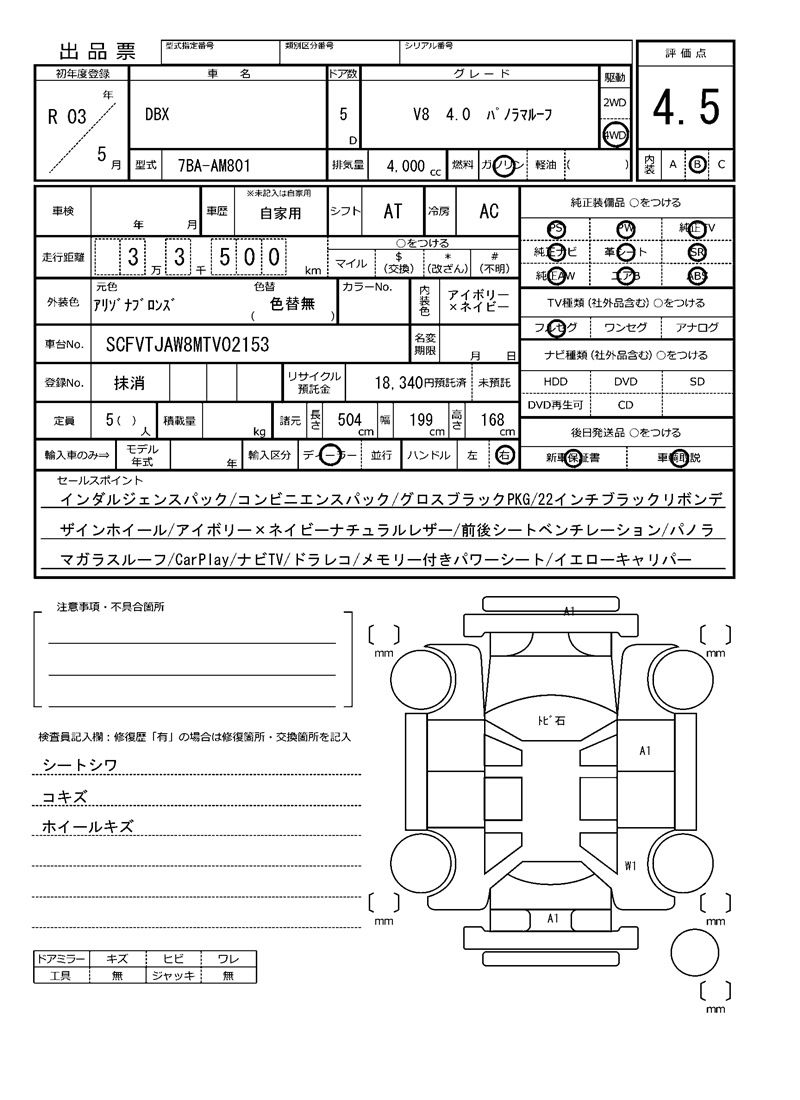 出品票
型式指定番号 類別区分番号 シリアル番号
評価点
初年度登録 車名 ドア数 グレード 駆動
R 03 年 DBX 5 D V8 4.0 ﾊﾟﾉﾗﾏﾙｰﾌ 2WD 4.5
5 月 4WD
型式 7BA-AM801 排気量 4,000 cc 燃料 ガソリン 軽油 ( ) 内装 A B C
車検 年 月 車歴 ※未記入は自家用
自家用 シフト AT 冷房 AC 純正装備品 ○をつける
PS PW 純正TV
走行距離 3 万 3 千 5 0 0 km ○をつける 純正ナビ 革シート SR
マイル $ (交換) * (改ざん) # (不明) 純正AW エアB ABS
外装色 元色 色替 カラーNo. 内装色 アイボリー
ｱﾘｿﾞﾅﾌﾞﾛﾝｽﾞ ( 色替無 ) ×ネイビー TV種類(社外品含む) ○をつける
フルセグ ワンセグ アナログ
車台No. SCFVTJAW8MTV02153 名変期限 月 日 ナビ種類(社外品含む) ○をつける
登録No. 抹消 リサイクル預託金 18,340円預託済 未預託 HDD DVD SD
DVD再生可 CD
定員 5( ) 人 積載量 kg 諸元 長さ 504 cm 幅 199 cm 高さ 168 cm 後日発送品 ○をつける
輸入車のみ⇒ モデル年式 年 輸入区分 ディーラー 並行 ハンドル 左 右 新車保証書 車輌取説
セールスポイント
インダルジェンスパック/コンビニエンスパック/グロスブラックPKG/22インチブラックリボンデ
ザインホイール/アイボリー×ネイビーナチュラルレザー/前後シートベンチレーション/パノラ
マガラスルーフ/CarPlay/ナビTV/ドラレコ/メモリー付きパワーシート/イエローキャリパー
注意事項・不具合箇所
検査員記入欄：修復歴「有」の場合は修復箇所・交換箇所を記入
シートシワ
コキズ
ホイールキズ
ドアミラー キズ ヒビ ワレ
工具 無 ジャッキ 無
A1
mm mm
ﾄﾋﾞ石
A1
W1
mm A1 mm
mm